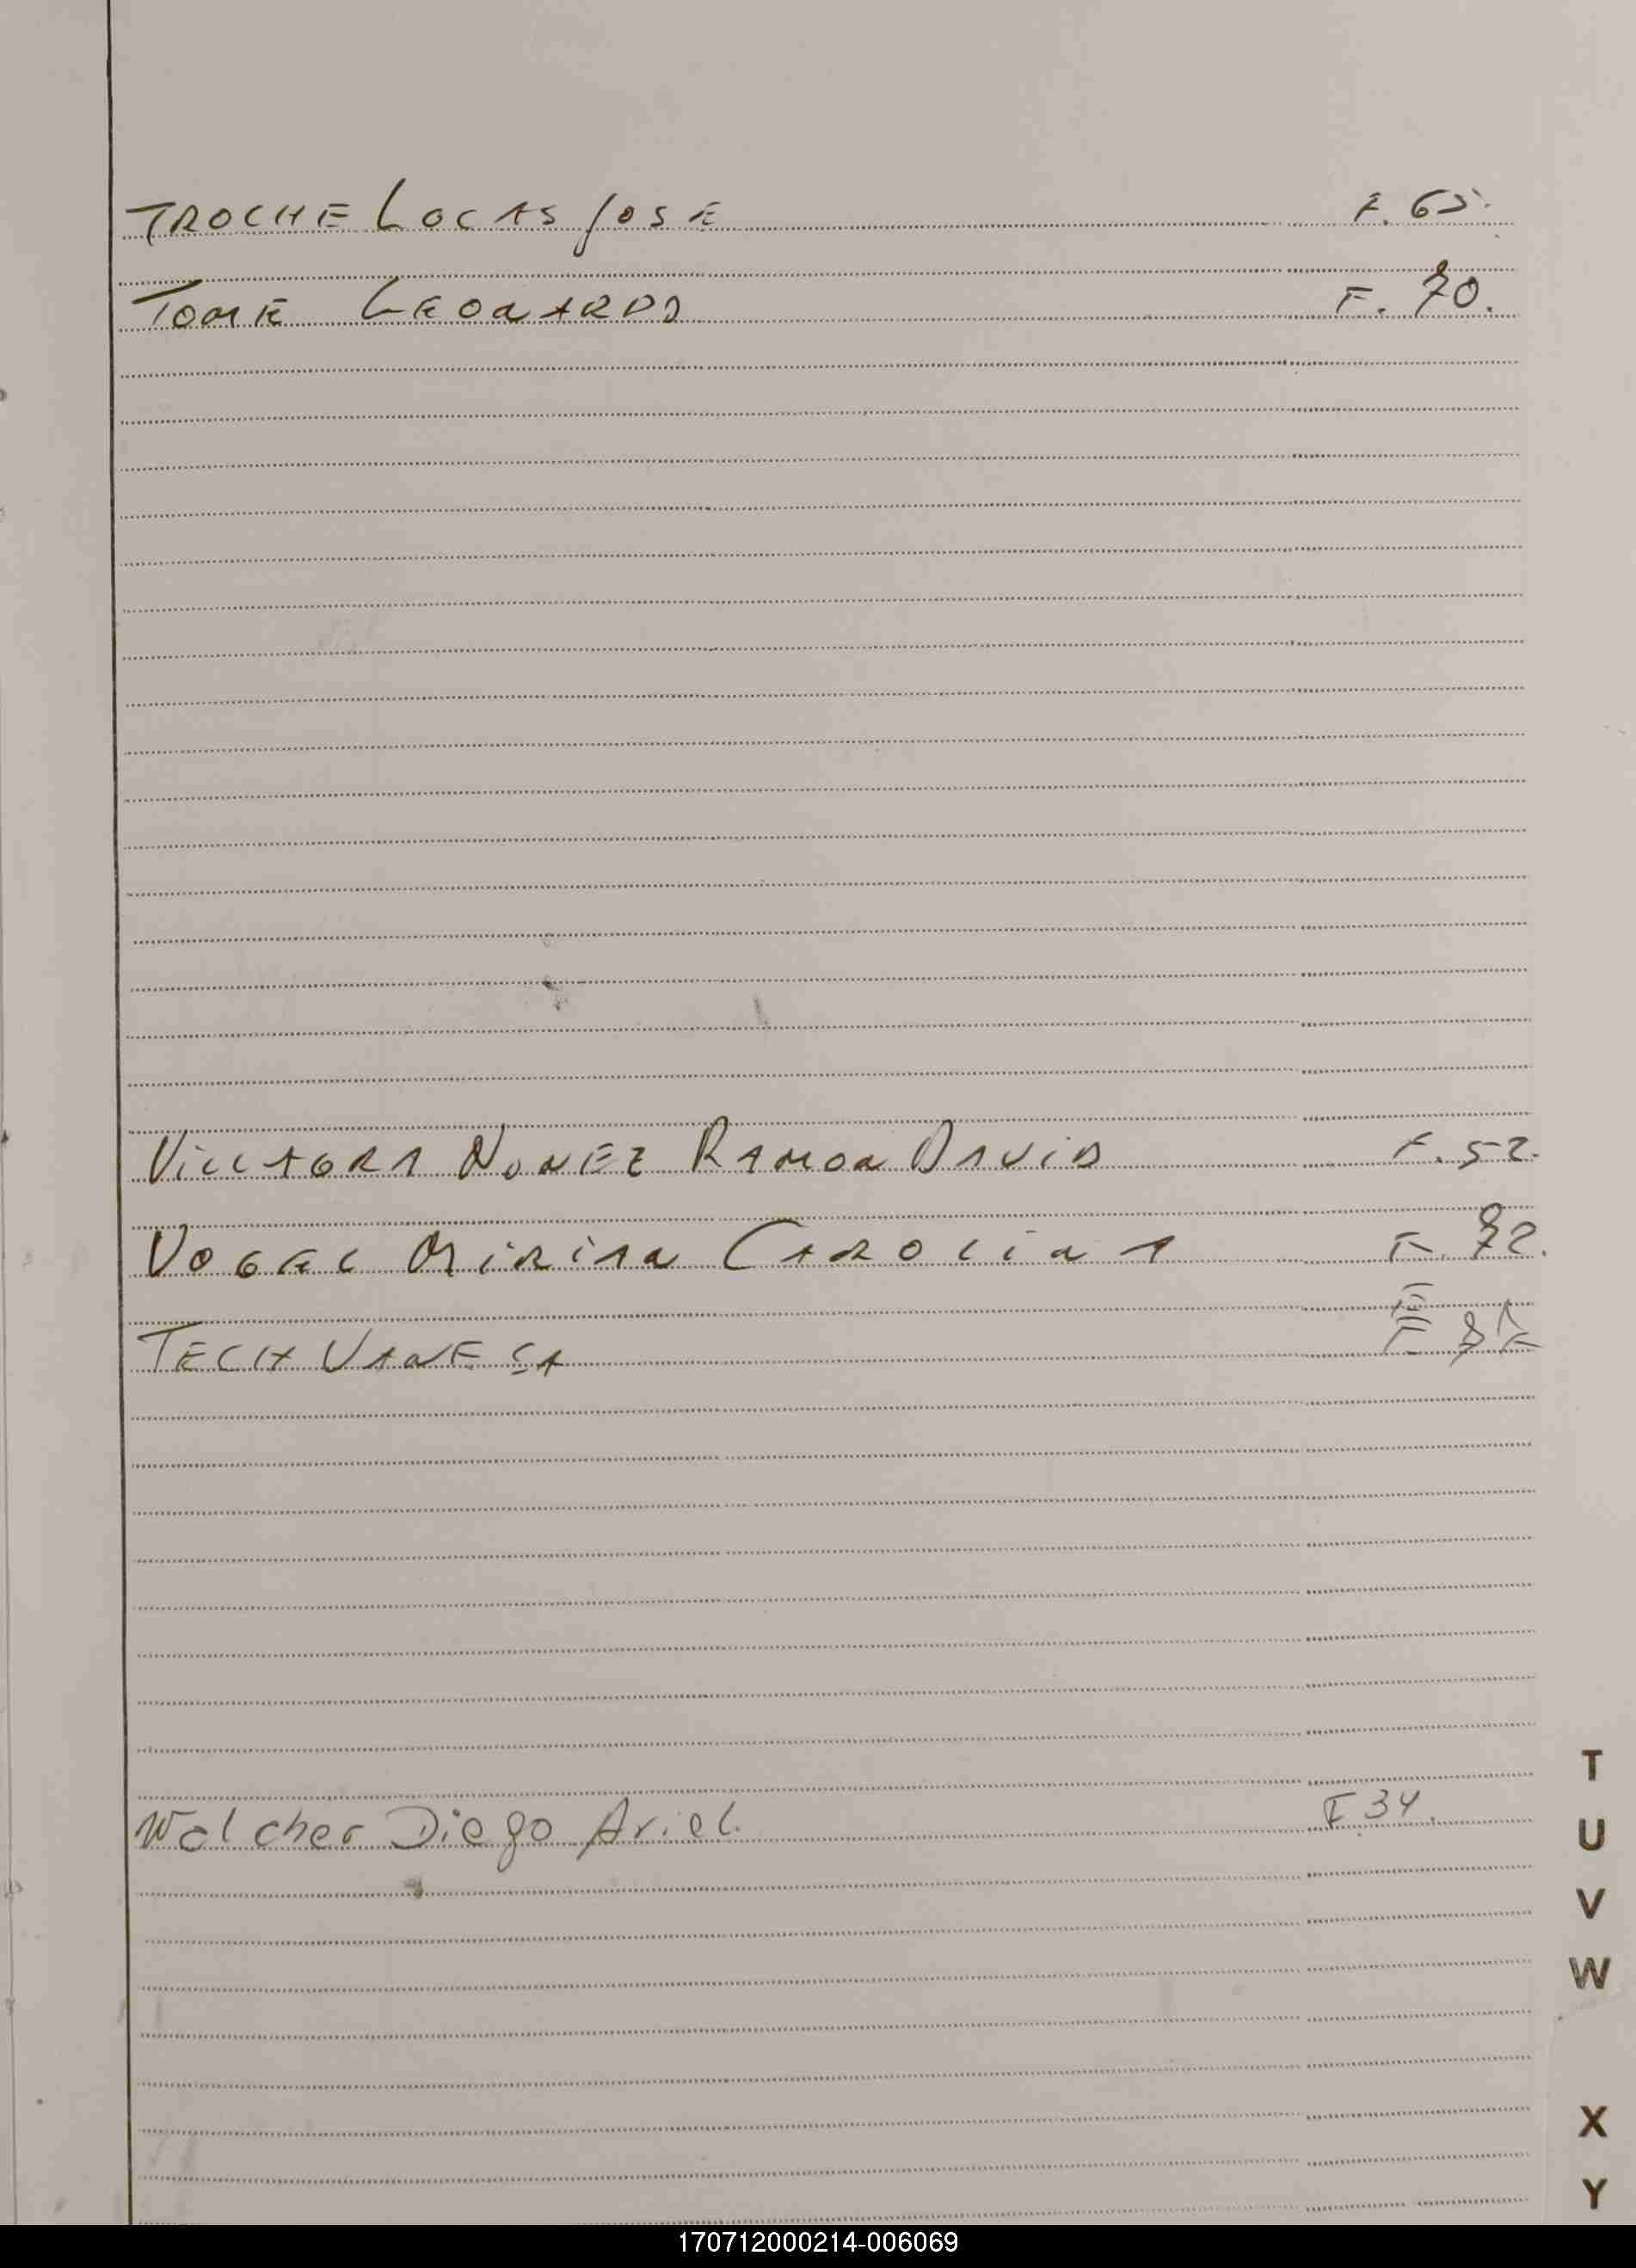 TROCHE LUCAS JOSE F. 65.
TOME LEONARDO F. 70.
VILLAGRA NUNEZ RAMON DAVID F. 52.
VOGEL MIRIAN CAROLINA F. 72.
TECH VANESA F
Walcher Diego Ariel. F 34.
T
U
V
W
X
Y
170712000214-006069